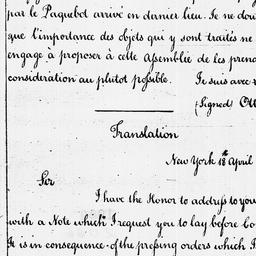 par le Paquebot arrivé en dernier lieu. Je ne dou
que l'importance des objets qui y sont traités ne
engage à proposer à cette Assemblée de les prend
considération au plutot possible. Je suis avec
(Signed)
Translation
New York 18th April
Sir
I have the Honor to address to you
with a Note which I request you to lay before Co
It is in consequence of the pressing orders which I